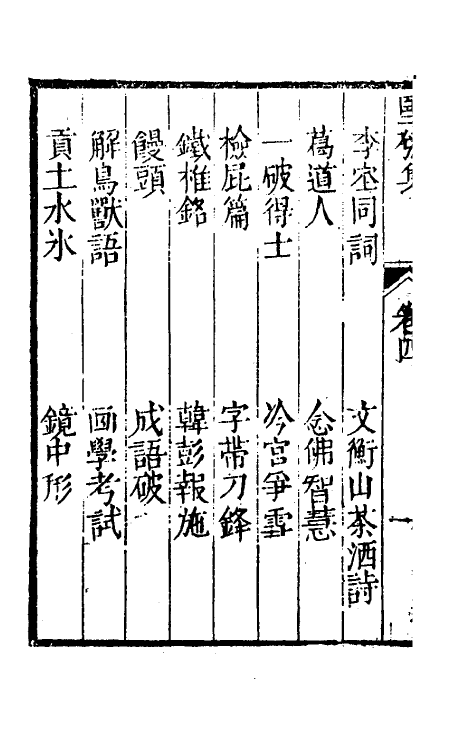 李空同詞　文衡山茶酒詩
葛道人　念佛智慧
一破得士　冷官爭雪
檢屍篇　字帶刀鋒
鐵椎銘　韓彭報施
饅頭　成語破
解鳥獸語　画學考試
貢士水氷　鏡中形
卷四